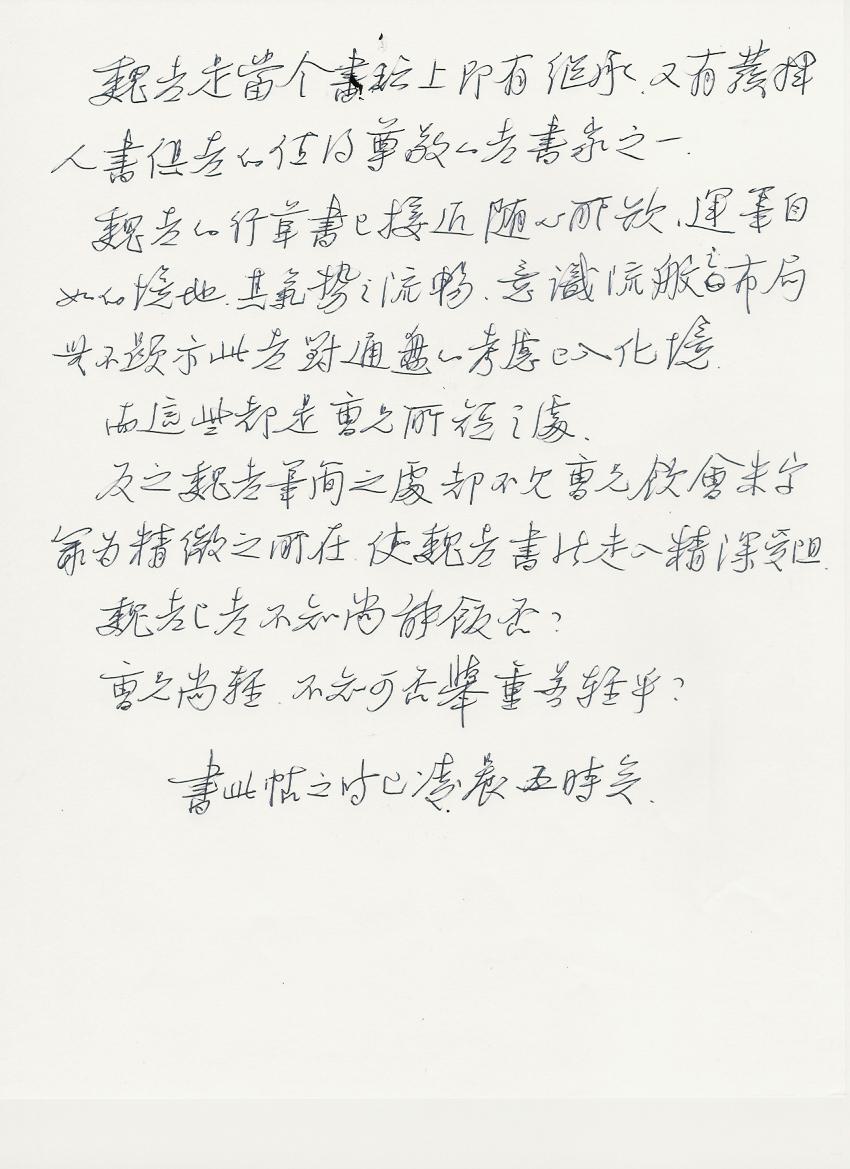 魏老是當今書坛上即有继承,又有蕟揮
人書俱老的值得尊敬的老書家之一.
魏老的行草書已接近随心所欲、運筆自
如的境地.其氣势之流暢、意識流般的布局
无不顯示此老對通盤的考慮已入化境.
而這些却是曹兄所短之處.
反之魏老筆简之處却不欠曹兄
為精微之所在.使魏老書 走入精深受阻.
魏老已老不知尚能飯否?
曹兄尚輕.不知可否舉重若輕乎?
書此帖之时已凌晨五時矣.